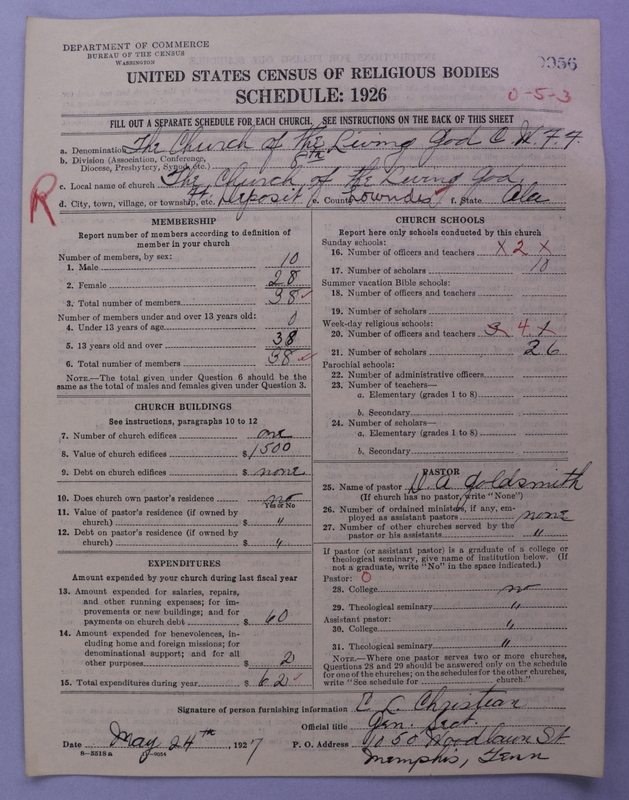 DEPARTMENT OF COMMERCE
BUREAU OF THE CENSUS
WASHINGTON
UNITED STATES CENSUS OF RELIGIOUS BODIES
SCHEDULE: 1926
0-5-3
FILL OUT A SEPARATE SCHEDULE FOR EACH CHURCH. SEE INSTRUCTIONS ON THE BACK OF THIS SHEET
a. Denomination The Church of the Living God C. W. F. F.
b. Division (Association, Conference, Diocese, Presbytery, Synod, etc.) 8th
c. Local name of church The Church of the Living God
R
d. City, town, village, or township, etc. Ft. Deposit e. County Lowndes f. State Ala
MEMBERSHIP
Report number of members according to definition of
member in your church
Number of members, by sex:
1. Male 10
2. Female 28
3. Total number of members 38
Number of members under and over 13 years old:
4. Under 13 years of age 0
5. 13 years old and over 38
6. Total number of members 38
NOTE.—The total given under Question 6 should be the
same as the total of males and females given under Question 3.
CHURCH BUILDINGS
See instructions, paragraphs 10 to 12
7. Number of church edifices one
8. Value of church edifices $ 1500
9. Debt on church edifices $ none
10. Does church own pastor's residence no
Yes or No
11. Value of pastor's residence (if owned by
church) $ "
12. Debt on pastor's residence (if owned by
church) $ "
EXPENDITURES
Amount expended by your church during last fiscal year
13. Amount expended for salaries, repairs,
and other running expenses; for im-
provements or new buildings; and for
payments on church debt $ 60
14. Amount expended for benevolences, in-
cluding home and foreign missions; for
denominational support; and for all
other purposes $ 2
15. Total expenditures during year $ 62
CHURCH SCHOOLS
Report here only schools conducted by this church
Sunday schools:
16. Number of officers and teachers x 2 x
17. Number of scholars 10
Summer vacation Bible schools:
18. Number of officers and teachers
19. Number of scholars
Week-day religious schools:
20. Number of officers and teachers 3 4 x
21. Number of scholars 26
Parochial schools:
22. Number of administrative officers
23. Number of teachers—
a. Elementary (grades 1 to 8)
b. Secondary
24. Number of scholars—
a. Elementary (grades 1 to 8)
b. Secondary
PASTOR
25. Name of pastor Goldsmith
(If church has no pastor, write "None")
26. Number of ordained ministers, if any, em-
ployed as assistant pastors none
27. Number of other churches served by the
pastor or his assistants "
If pastor (or assistant pastor) is a graduate of a college or
theological seminary, give name of institution below. (If
not a graduate, write "No" in the space indicated.)
Pastor: 0
28. College no
29. Theological seminary "
Assistant pastor:
30. College "
31. Theological seminary "
NOTE.—Where one pastor serves two or more churches,
Questions 28 and 29 should be answered only on the schedule
for one of the churches; on the schedules for the other churches,
write "See schedule for church."
Signature of person furnishing information C. L. Christian
Official title Gen. Sect.
Date May 24th, 1927 P. O. Address 1050 Woodlawn St
8—5518a Memphis, Tenn